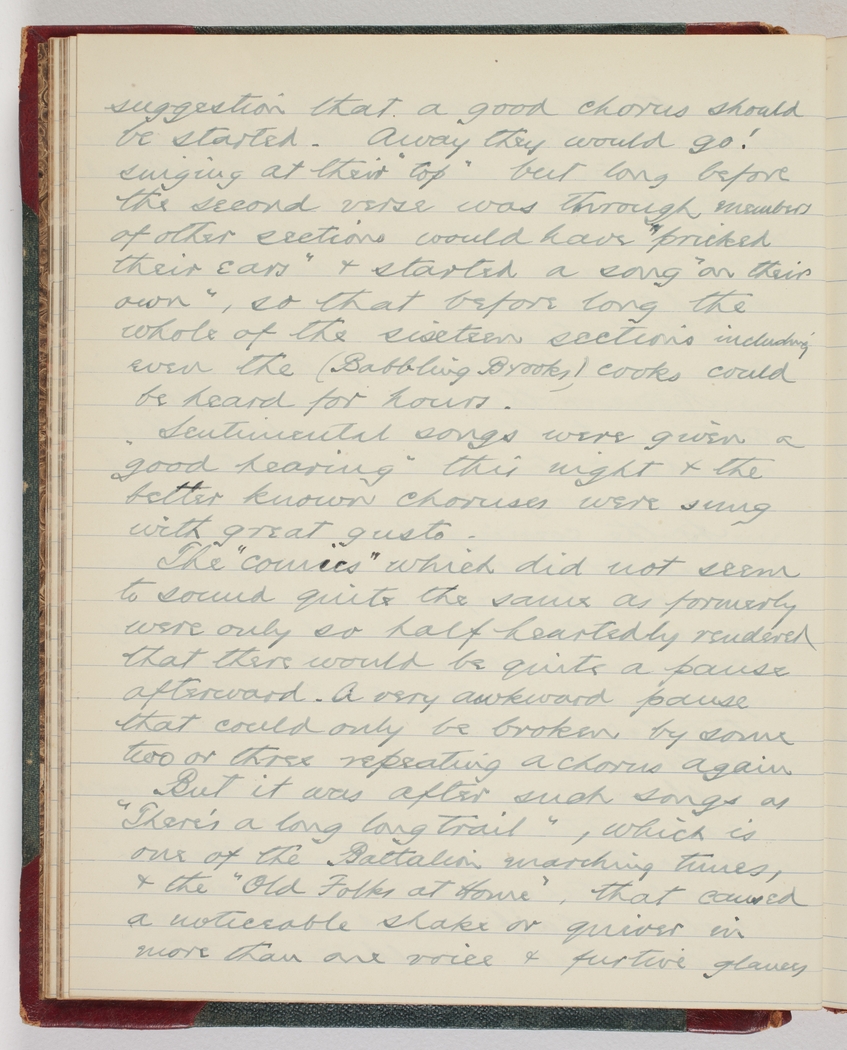 suggestion that a good chorus should
be started. Away they would go!
singing at their "top" but long before
the second verse was through members
of other sections would have "pricked
their ears" & started a song "on their
own", so that before long the
whole of the sixteen sections including
even the (Babbling Brooks) cooks could
be heard for hours.
Sentimental songs were given a
"good hearing" this night & the
better known choruses were sung
with great gusto.
The "comics" which did not seem
to sound quite the same as formerly
were only so half heartedly rendered
that there would be quite a pause
afterward. A very awkward pause
that could only be broken by some
two or three repeating a chorus again
But it was after such songs as
"There's a long long trail", which is
one of the Battalion marching tunes,
& the "Old Folks at Home", that caused
a noticeable shake or quiver in
more than one voice & furtive glances